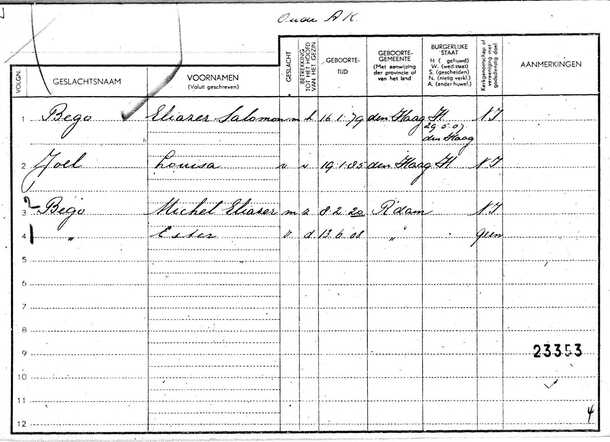 Oude A K.
VOLGN.
GESLACHTSNAAM
VOORNAMEN
(Voluit geschreven)
GESLACHT
BETREKKING TOT HET HOOFD VAN HET GEZIN
GEBOORTE-
TIJD
GEBOORTE-
GEMEENTE
(Met aanwijzing
der provincie of
van het land
BURGERLIJKE
STAAT
H (gehuwd)
W. (wed. staat)
S. (gescheiden)
N. (nietig verkl.)
A. (ander huwel.)
Kerkgenootschap of vereeniging met godsdienstig doel
AANMERKINGEN
1 Bego Eliazer Salomon m h 16 1 79 den Haag H. N I
29 5 07
den Haag
2 Joel Louisa v v 19 1 85 den Haag H N I
2
3 Bego Michel Eliazer m a 8 2 20 R'dam N I
1
4 " Ester v d 13 6 08 " geen
5
6
7
8
9 23353
10
11
12 4